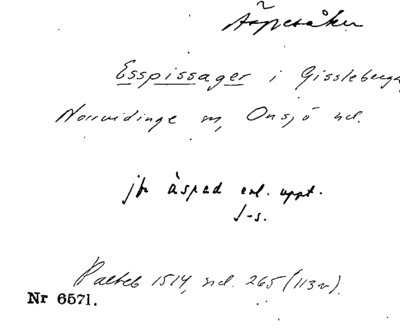 Äspesåker
Esspissager i Gissleberga
Norrvidinge sn, Onsjö hd.
jfr äspad enl. uppt.
J-s.
Palteb 1514, sid. 265 (113v).
Nr 6571.